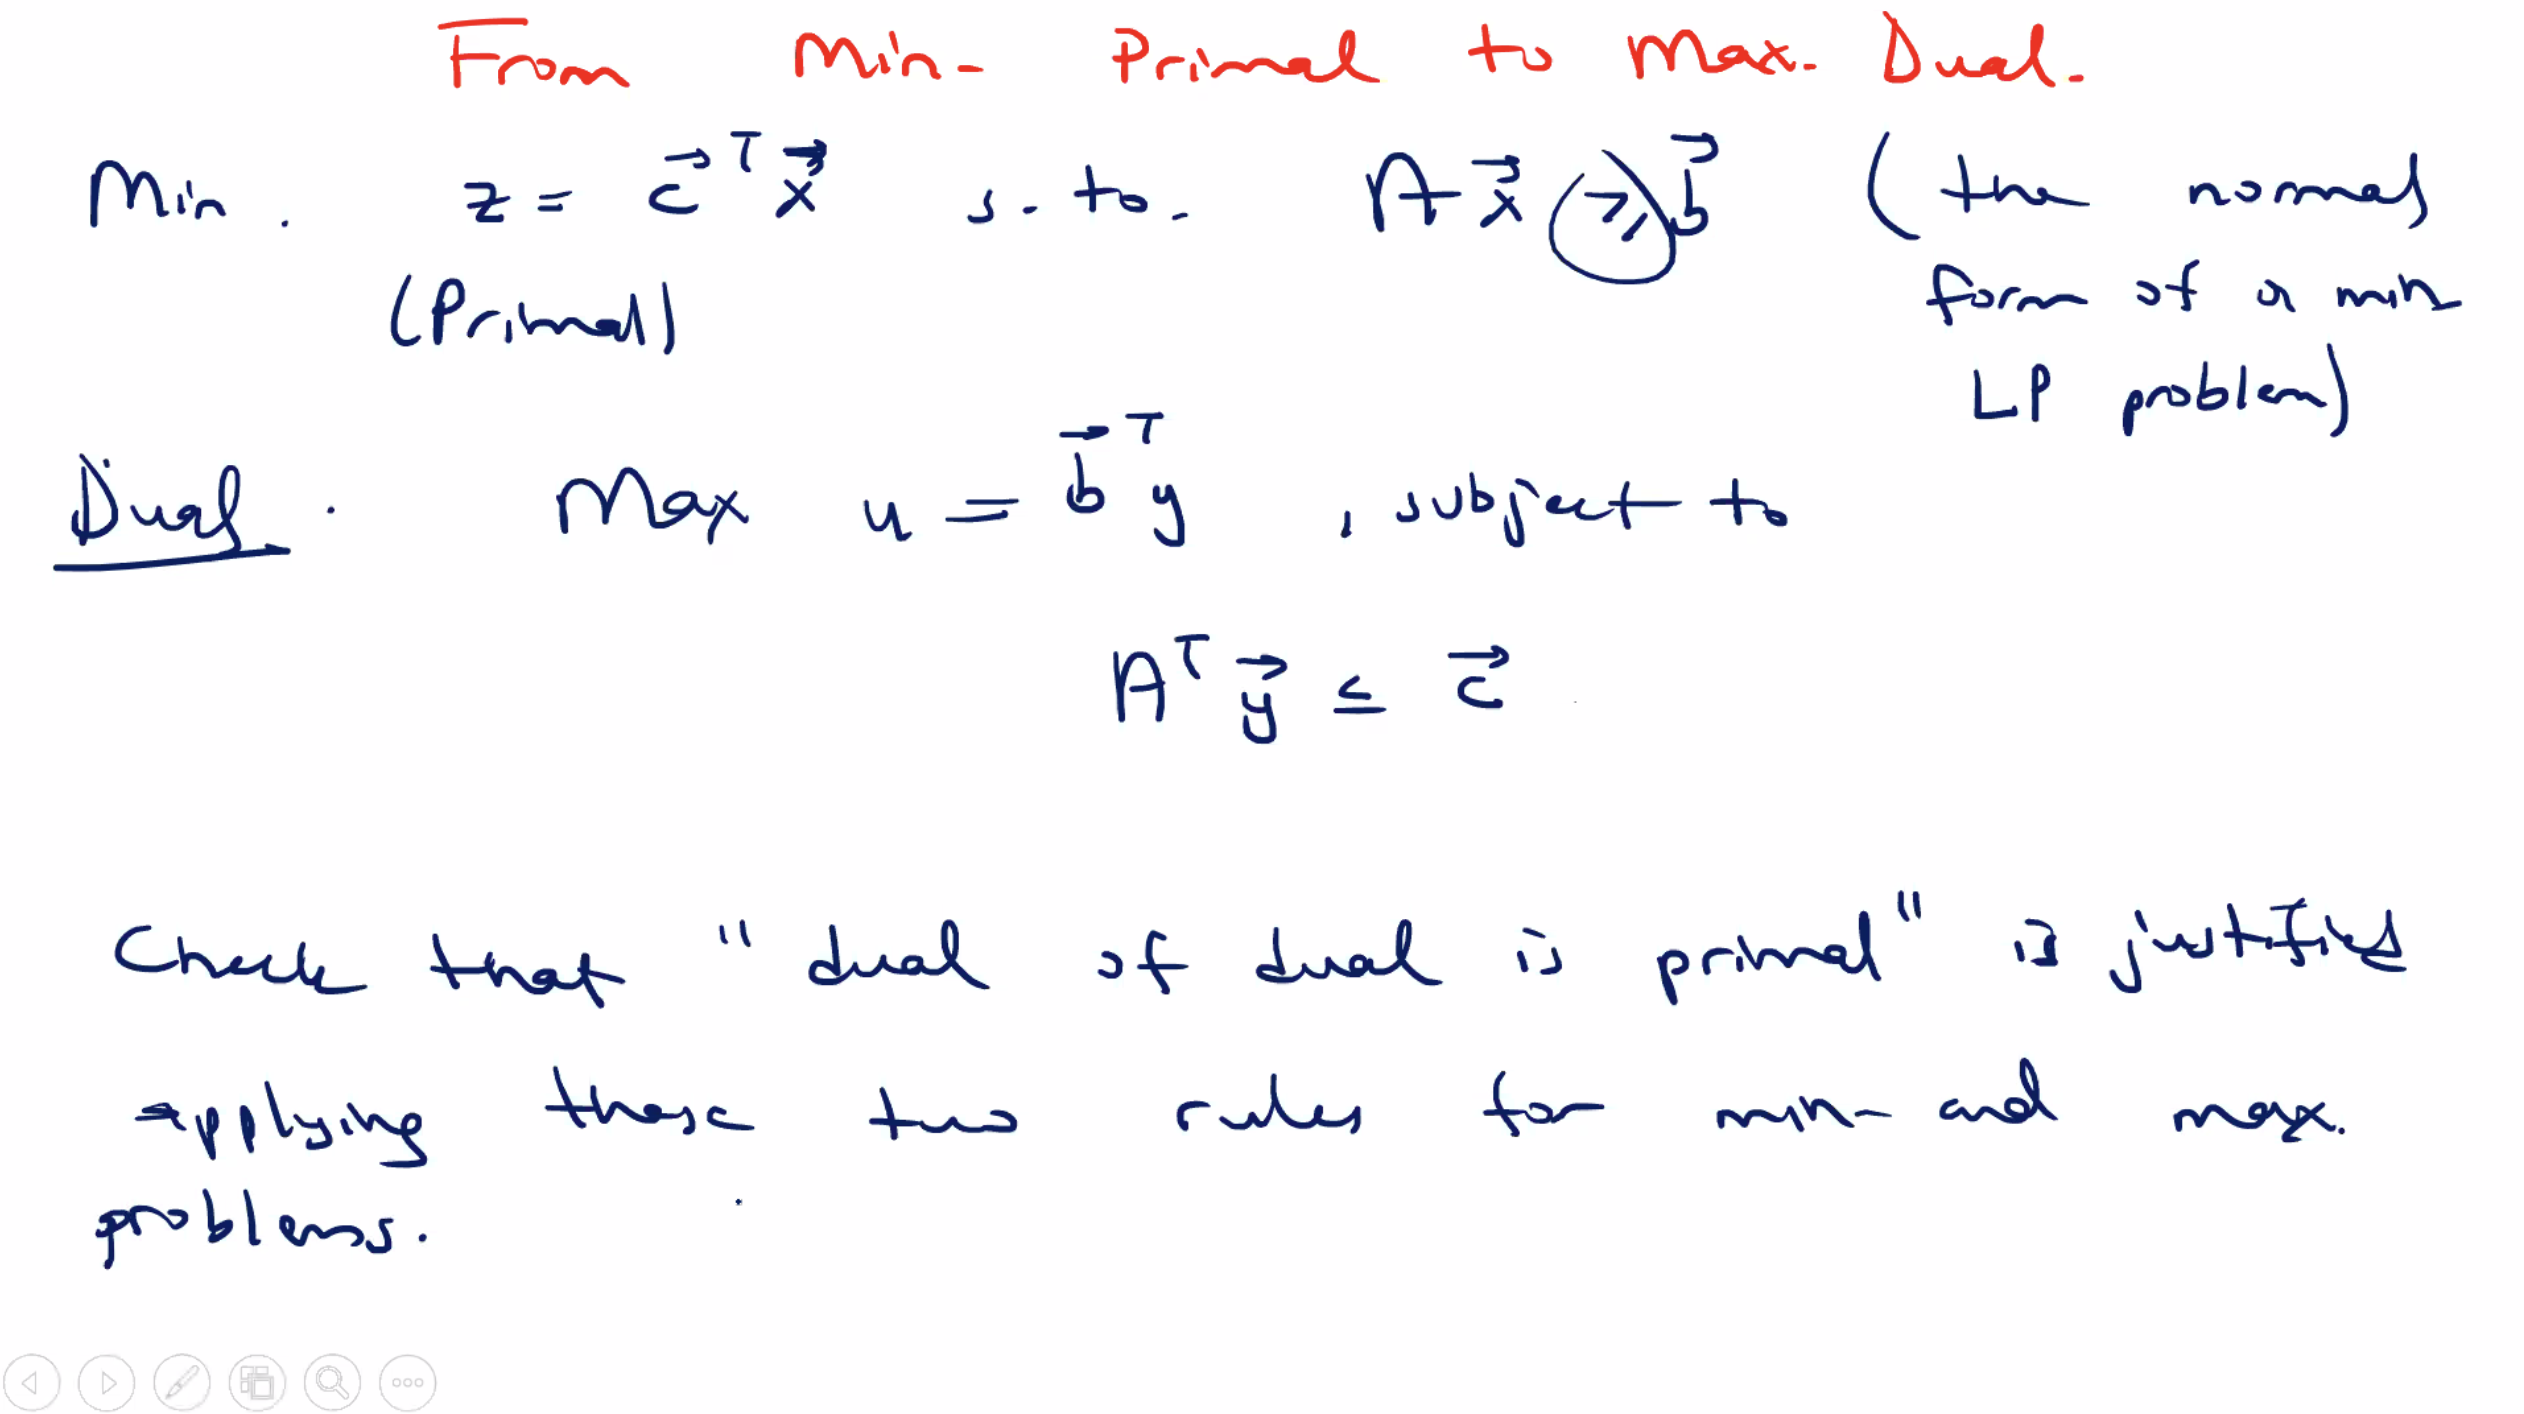 From Min- Primal to Max. Dual.
Min. z = c⃗ᵀ x⃗ s. to. A x⃗ ≥ b⃗ (the normal
(Primal) form of a min
LP problem)
Dual. Max u = b⃗ᵀ y , subject to
Aᵀ y⃗ ≤ c⃗
Check that "dual of dual is primal" is justified
applying these two rules for min- and max.
problems.